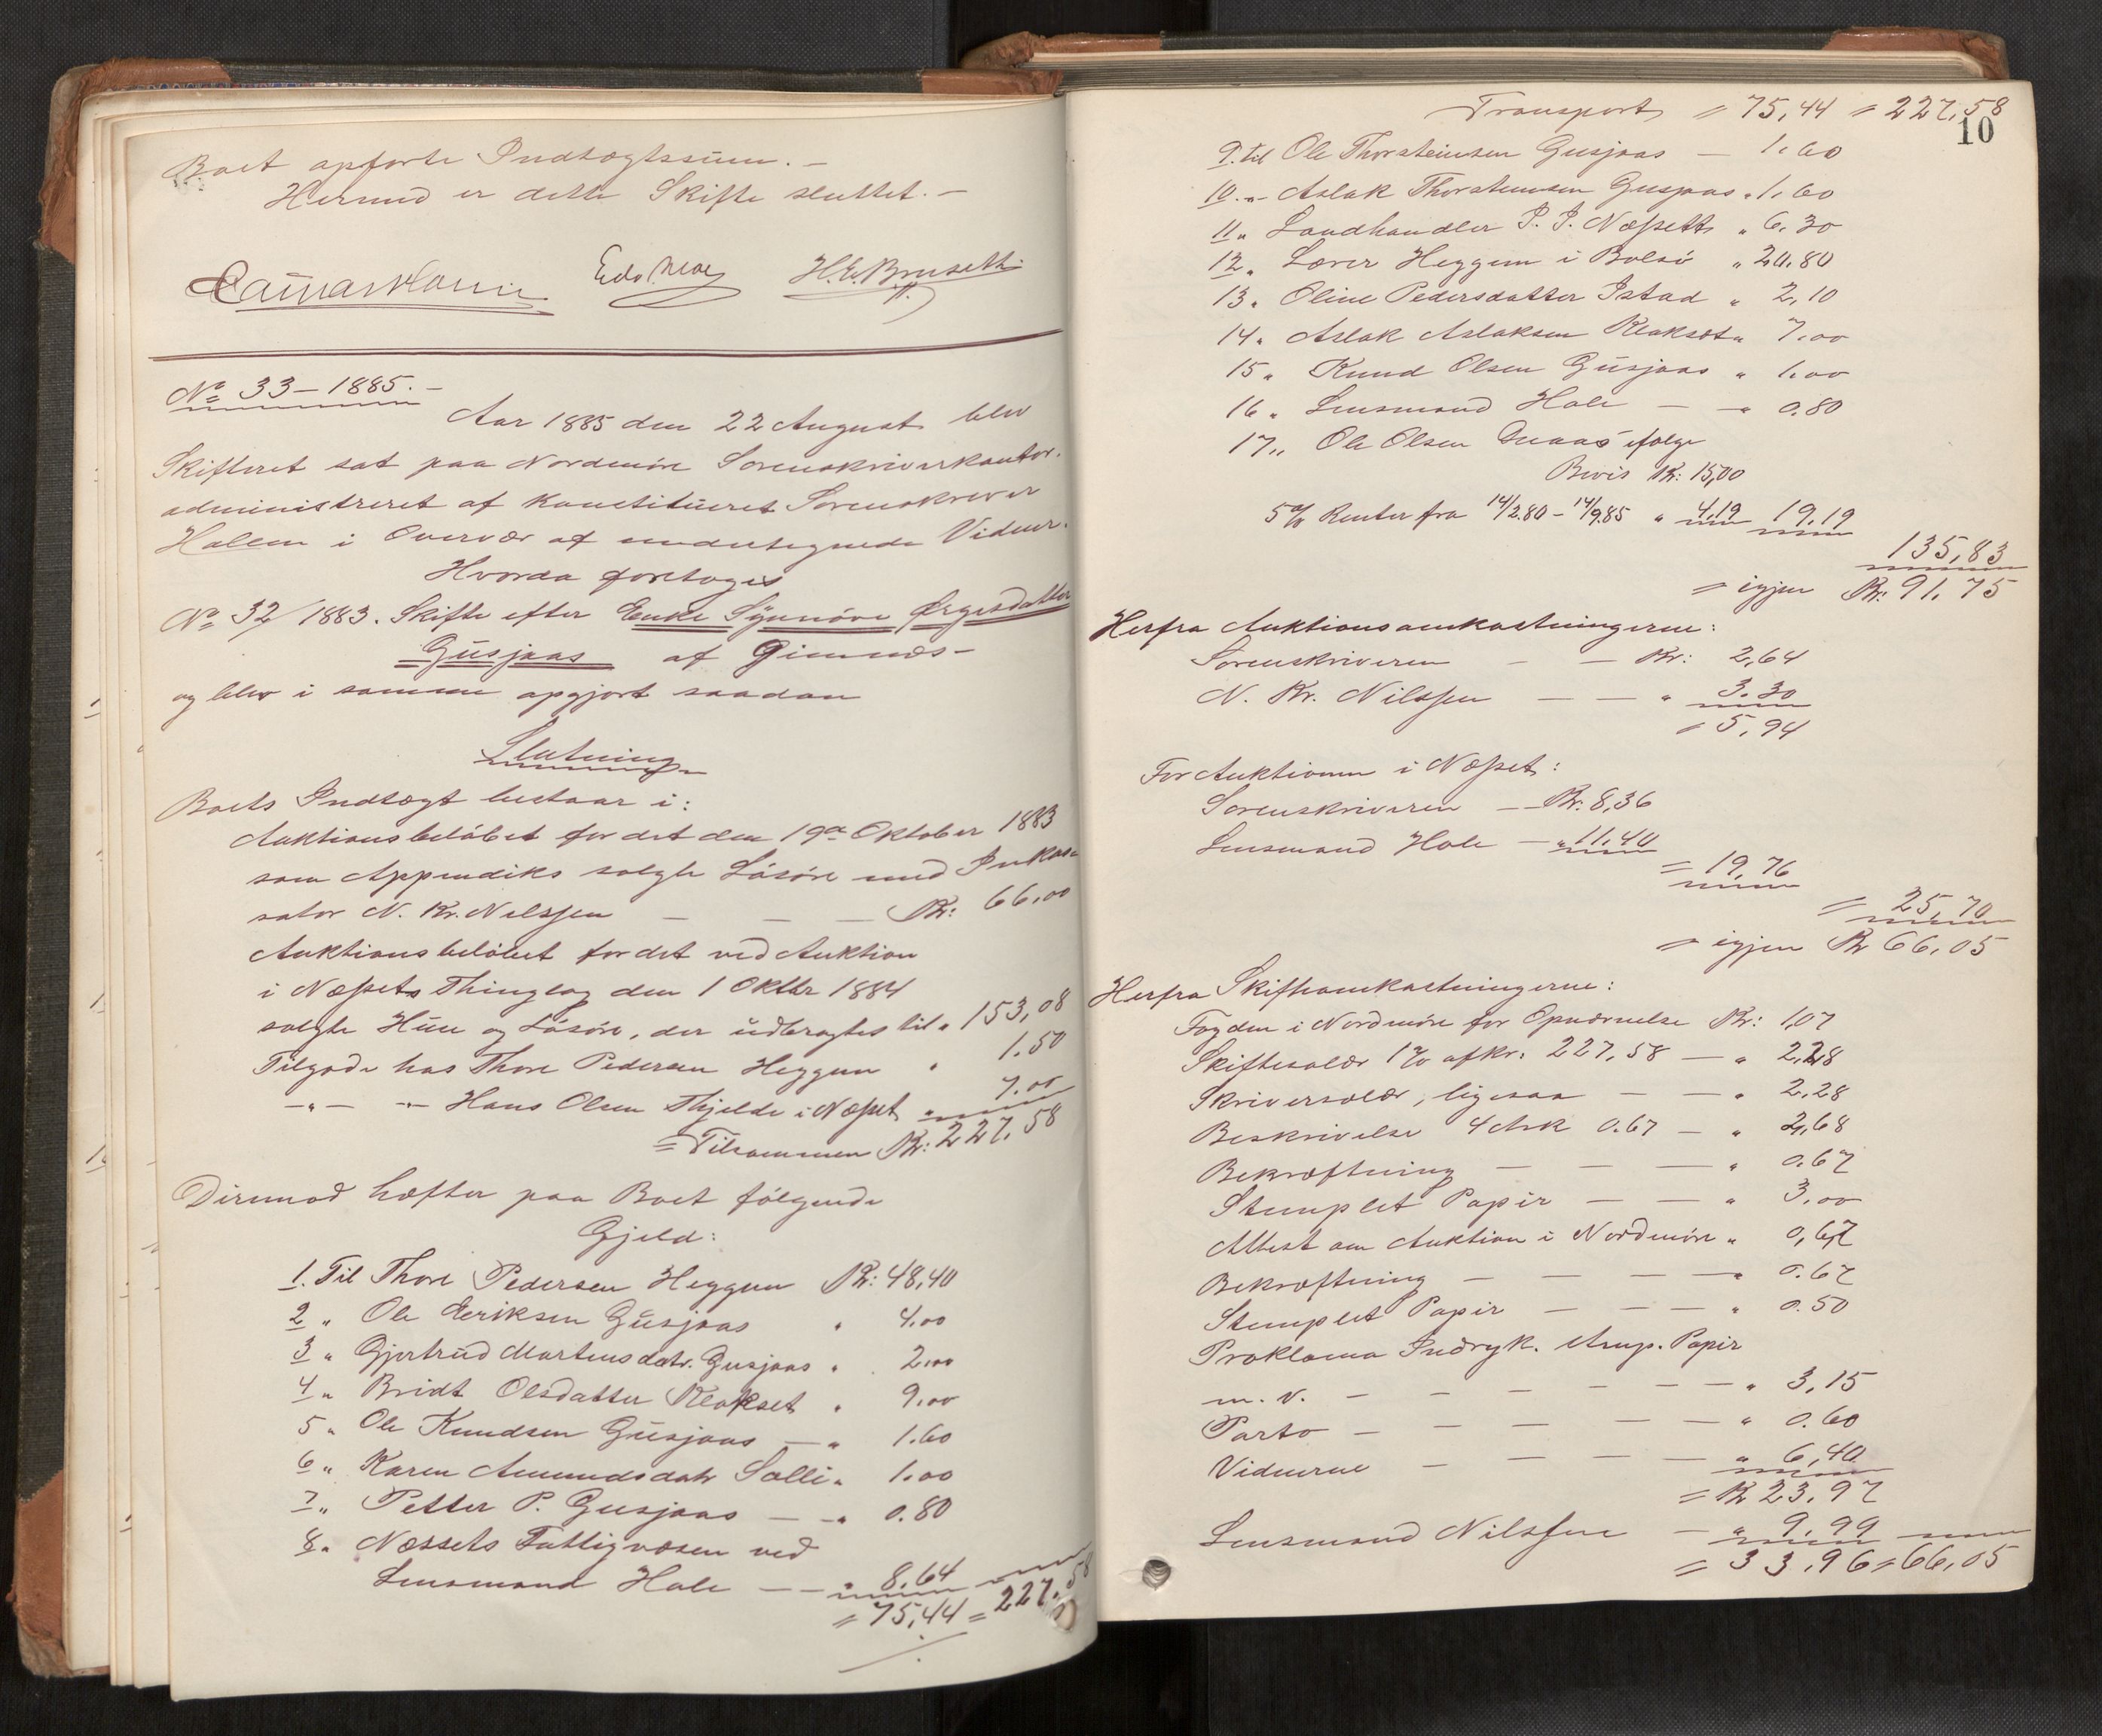 Boet opførte Indtægtssum. –
Hermed er dette Skifte sluttet. –
Edv. Moe H. E. Bruseth
No 33 – 1885. –
Aar 1885 den 22 August blev
Skifteret sat paa Nordmøre Sorenskriverkontor.
administreret af konstitueret Sorenskriver
Hallem i Overvær af undertegnede Vidner.
Hvorda foretoges
No 32/1883. Skifte efter Enke Synnøve Ørgesdatter
Gusjaas af Gimnæs –
og blev i samme opgjort saadan
Slutning
Boets Indtægt bestaar i:
Auktionsbeløbet for det den 19de Oktober 1883
som Appendiks solgte Løsøre med Inkas-
sator N. Kr. Nilssen — — — Kr: 66,00
Auktionsbeløbet for det ved Auktion
i Næssets Thinglag den 1 Oktbr 1884
solgte Huse og Løsøre, der udbragtes til " 153,08
Tilgode hos Thore Pedersen Heggem " 1.50
— " — " — Hans Olsen Thjelde i Næsset " 7.00
= Tilsammen Kr: 227,58
Derimod hæfter paa Boet følgende
Gjeld:
1. Til Thore Pedersen Heggem Kr: 48,40
2 " Ole Eeriksen Gusjaas " 4.00
3 " Gjertrud Martinsdatr. Gusjaas " 2.00
4 " Bridt Olsdatter Klokset " 9.00
5 " Ole Knudsen Gusjaas — " 1.60
6 " Karen Amundsdatr Solli " 1.00
7 " Petter P. Gusjaas — — " 0.80
8 " Næssets Fattigvæsen ved
Lensmand Hole — — " 8.64
= 75,44 = 227,58
10
Transport = 75,44 = 227,58
9. til Ole Thorsteinsen Gusjaas — 1.60
10. " Aslak Thorsteinsen Gusjaas " 1.60
11 " Landhandler P. P. Næssett " 6.30
12 " Lærer Heggem i Bolsø " 20,80
13 " Oline Pedersdatter Istad " 2,10
14 " Aslak Aslaksen Kloksæt " 7.00
15 " Knud Olsen Gusjaas " 1.00
16 " Lensmand Hole — — " 0.80
17 " Ole Olsen ifølge
Bevis Kr: 15,00
5% Renter fra 14/2.80 – 14/9.85 " 4,19 19,19
135,83
= igjen Kr. 91.75
Herfra Auktionsomkostningerne:
Sorenskriveren — — Kr: 2,64
N. Kr. Nilssen — — " 3.30
= 5,94
For Auktionen i Næsset:
Sorenskriveren — Kr. 8,36
Lensmand Hole — " 11.40
= 19,76
= 25,70
= igjen Kr 66,05
Herfra Skifteomkostningerne:
Fogden i Nordmøre for Opnævnelse Kr: 1,07
Skiftesalær 1% af kr. 227,58 — " 2,28
Skriversalær, ligesaa — — " 2,28
Beskrivelse 4 Ark 0.67 — " 2,68
Bekræftning — — — " 0.67
Stemplet Papir — — " 3,00
Attest om Auktion i Nordmøre " 0,67
Bekræftning — — — — " 0.67
Stemplet Papir — — — " 0.50
Proklama Indryk. stmp. Papir
m. v. — — — — — — " 3,15
Porto — — — — — " 0.60
Vidnerne — — — — " 6,40
= Kr 23,97
Lensmand Nilssen — " 9,99
= 33,96 = 66,05